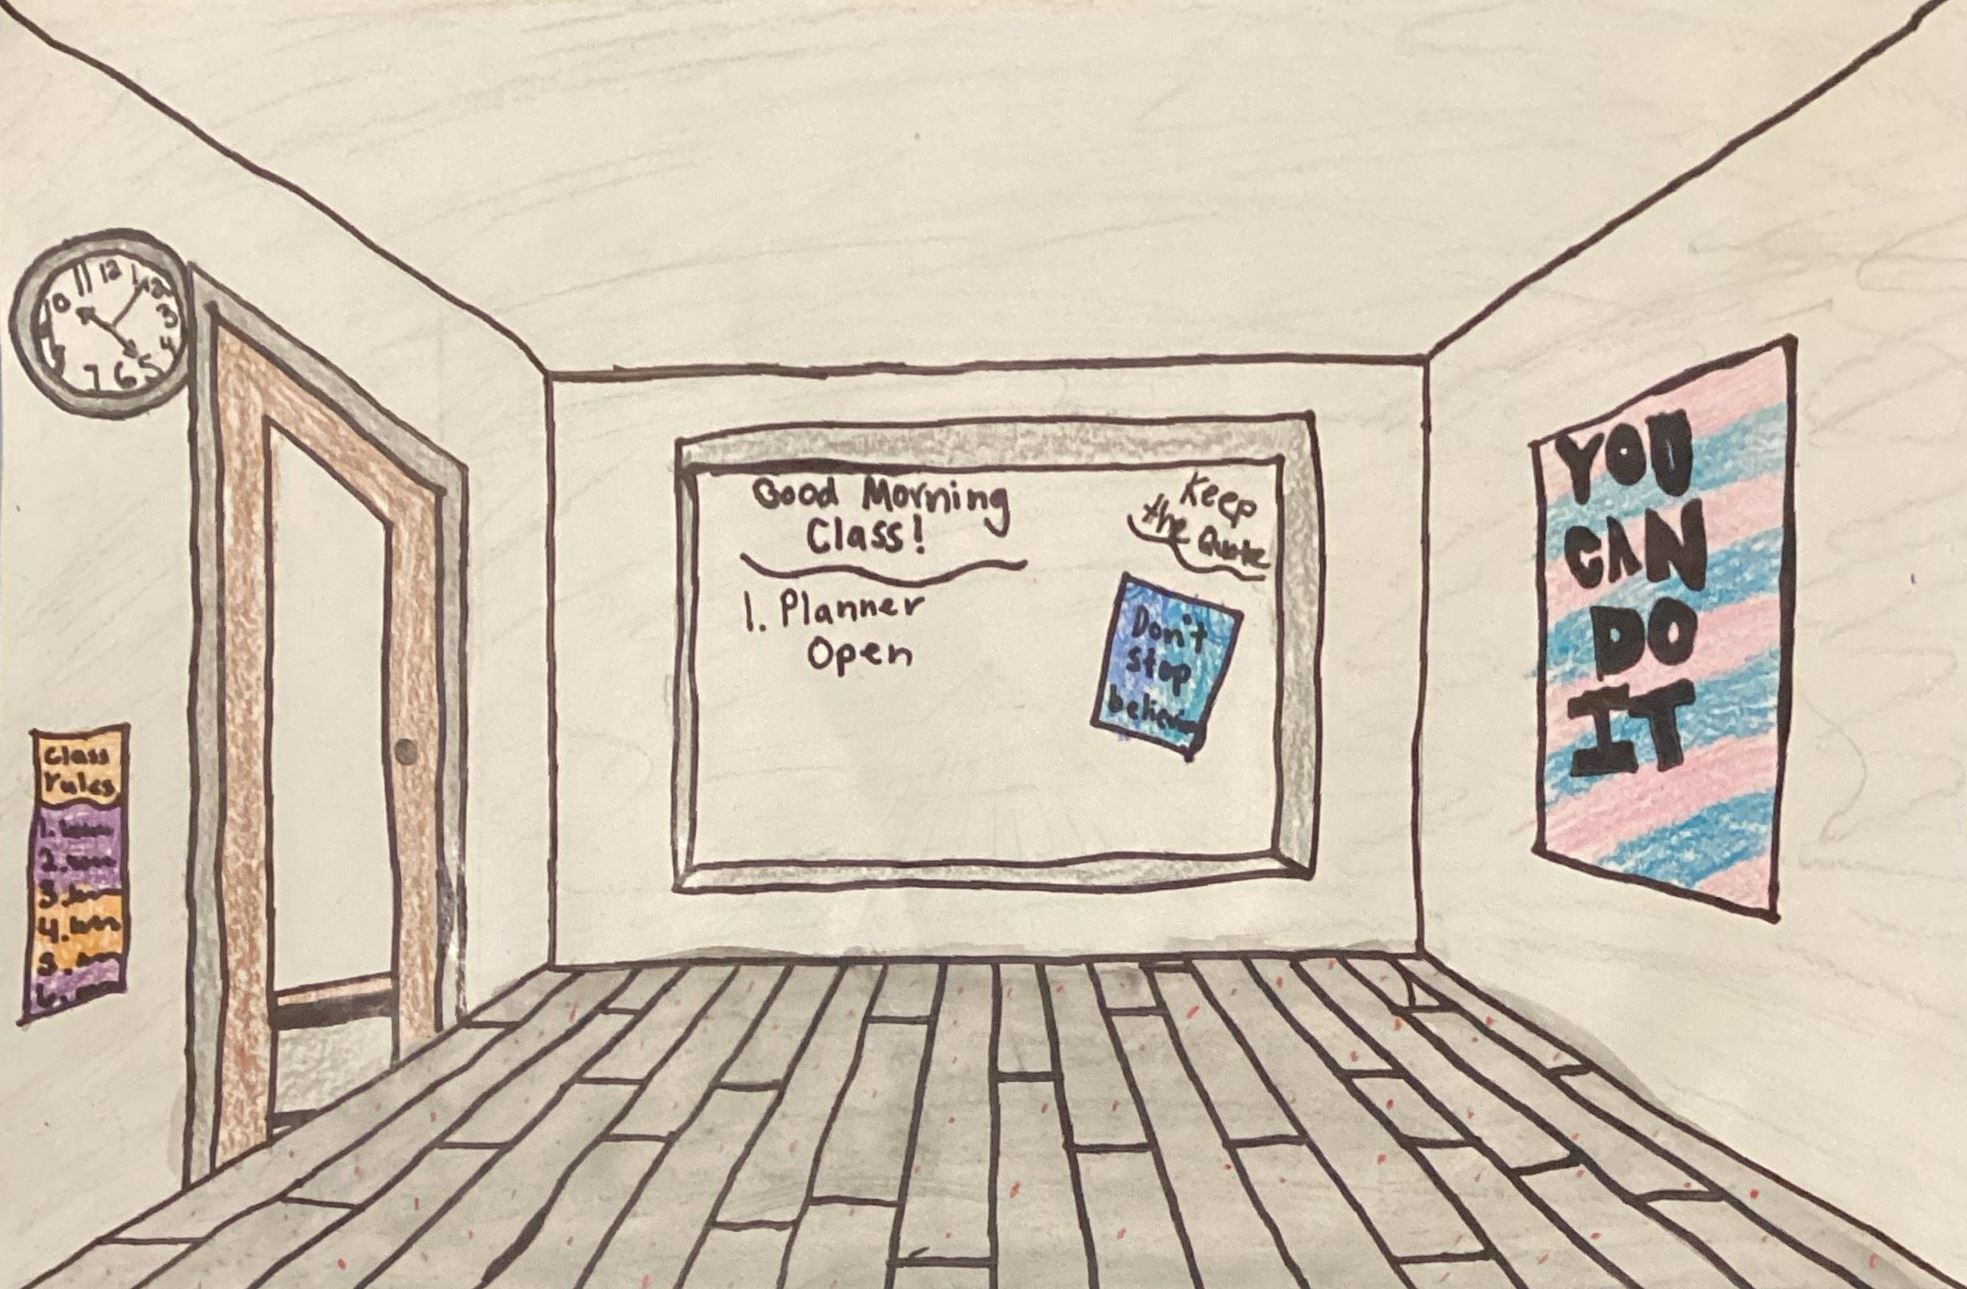 12
1
2
3
4
5
6
7
10
11
class
rules
1.
2.
3.
4.
5.
6.
Good Morning
Class!
1. Planner
Open
Keep
the Quote
Don't
stop
YOU
CAN
DO
IT